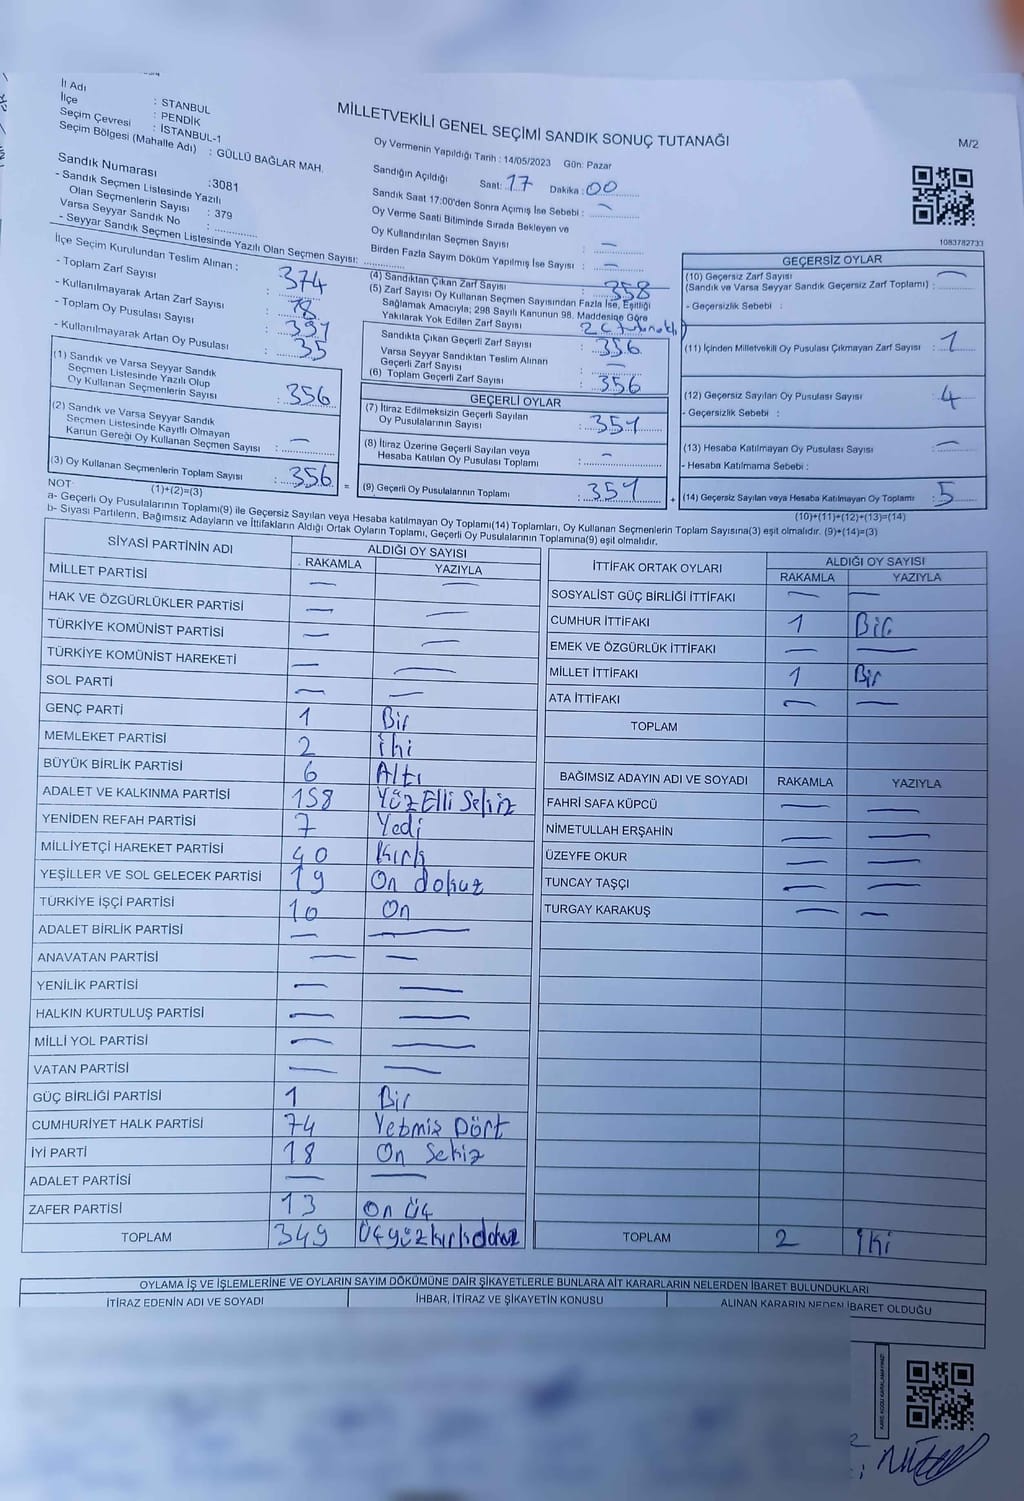 İl Adı : STANBUL
İlçe : PENDİK
Seçim Çevresi : İSTANBUL-1
Seçim Bölgesi (Mahalle Adı) : GÜLLÜ BAĞLAR MAH.
MİLLETVEKİLİ GENEL SEÇİMİ SANDIK SONUÇ TUTANAĞI
M/2
Sandık Numarası :3081
- Sandık Seçmen Listesinde Yazılı
Olan Seçmenlerin Sayısı : 379
Varsa Seyyar Sandık No :
- Seyyar Sandık Seçmen Listesinde Yazılı Olan Seçmen Sayısı:
Oy Vermenin Yapıldığı Tarih : 14/05/2023 Gün: Pazar
Sandığın Açıldığı Saat: 17 Dakika : 00
Sandık Saat 17:00'den Sonra Açımış İse Sebebi : —
Oy Verme Saati Bitiminde Sırada Bekleyen ve
Oy Kullandırılan Seçmen Sayısı : —
Birden Fazla Sayım Döküm Yapılmış İse Sayısı : —
1083782733
İlçe Seçim Kurulundan Teslim Alınan :
- Toplam Zarf Sayısı : 374
- Kullanılmayarak Artan Zarf Sayısı : 18
- Toplam Oy Pusulası Sayısı : 391
- Kullanılmayarak Artan Oy Pusulası : 35
(1) Sandık ve Varsa Seyyar Sandık
Seçmen Listesinde Yazılı Olup
Oy Kullanan Seçmenlerin Sayısı : 356
(2) Sandık ve Varsa Seyyar Sandık
Seçmen Listesinde Kayıtlı Olmayan
Kanun Gereği Oy Kullanan Seçmen Sayısı : —
(3) Oy Kullanan Seçmenlerin Toplam Sayısı : 356
(1)+(2)=(3)
(4) Sandıktan Çıkan Zarf Sayısı : 358
(5) Zarf Sayısı Oy Kullanan Seçmen Sayısından Fazla İse, Eşitliği
Sağlamak Amacıyla; 298 Sayılı Kanunun 98. Maddesine Göre
Yakılarak Yok Edilen Zarf Sayısı : 2 (tutanaklı)
Sandıkta Çıkan Geçerli Zarf Sayısı : 356
Varsa Seyyar Sandıktan Teslim Alınan
Geçerli Zarf Sayısı : —
(6) Toplam Geçerli Zarf Sayısı : 356
GEÇERLİ OYLAR
(7) İtiraz Edilmeksizin Geçerli Sayılan
Oy Pusulalarının Sayısı : 351
(8) İtiraz Üzerine Geçerli Sayılan veya
Hesaba Katılan Oy Pusulası Toplamı : —
= (9) Geçerli Oy Pusulalarının Toplamı : 351 +
GEÇERSİZ OYLAR
(10) Geçersiz Zarf Sayısı
(Sandık ve Varsa Seyyar Sandık Geçersiz Zarf Toplamı) : —
- Geçersizlik Sebebi :
(11) İçinden Milletvekili Oy Pusulası Çıkmayan Zarf Sayısı : 1
(12) Geçersiz Sayılan Oy Pusulası Sayısı : 4
- Geçersizlik Sebebi :
(13) Hesaba Katılmayan Oy Pusulası Sayısı : —
- Hesaba Katılmama Sebebi :
(14) Geçersiz Sayılan veya Hesaba Katılmayan Oy Toplamı : 5
(10)+(11)+(12)+(13)=(14)
NOT
a- Geçerli Oy Pusulalarının Toplamı(9) ile Geçersiz Sayılan veya Hesaba katılmayan Oy Toplamı(14) Toplamları, Oy Kullanan Seçmenlerin Toplam Sayısına(3) eşit olmalıdır. (9)+(14)=(3)
b- Siyasi Partilerin, Bağımsız Adayların ve İttifakların Aldığı Ortak Oyların Toplamı, Geçerli Oy Pusulalarının Toplamına(9) eşit olmalıdır.
SİYASİ PARTİNİN ADI ALDIĞI OY SAYISI
RAKAMLA YAZIYLA
MİLLET PARTİSİ — —
HAK VE ÖZGÜRLÜKLER PARTİSİ — —
TÜRKİYE KOMÜNİST PARTİSİ — —
TÜRKİYE KOMÜNİST HAREKETİ — —
SOL PARTİ — —
GENÇ PARTİ 1 Bir
MEMLEKET PARTİSİ 2 İki
BÜYÜK BİRLİK PARTİSİ 6 Altı
ADALET VE KALKINMA PARTİSİ 158 Yüz Elli Sekiz
YENİDEN REFAH PARTİSİ 7 Yedi
MİLLİYETÇİ HAREKET PARTİSİ 40 Kırk
YEŞİLLER VE SOL GELECEK PARTİSİ 19 On dokuz
TÜRKİYE İŞÇİ PARTİSİ 10 On
ADALET BİRLİK PARTİSİ — —
ANAVATAN PARTİSİ — —
YENİLİK PARTİSİ — —
HALKIN KURTULUŞ PARTİSİ — —
MİLLİ YOL PARTİSİ — —
VATAN PARTİSİ — —
GÜÇ BİRLİĞİ PARTİSİ 1 Bir
CUMHURİYET HALK PARTİSİ 74 Yetmiş Dört
İYİ PARTİ 18 On Sekiz
ADALET PARTİSİ — —
ZAFER PARTİSİ 13 On Üç
TOPLAM 349 Üçyüzkırkdokuz
İTTİFAK ORTAK OYLARI ALDIĞI OY SAYISI
RAKAMLA YAZIYLA
SOSYALİST GÜÇ BİRLİĞİ İTTİFAKI — —
CUMHUR İTTİFAKI 1 Bir
EMEK VE ÖZGÜRLÜK İTTİFAKI — —
MİLLET İTTİFAKI 1 Bir
ATA İTTİFAKI — —
TOPLAM
BAĞIMSIZ ADAYIN ADI VE SOYADI RAKAMLA YAZIYLA
FAHRİ SAFA KÜPCÜ — —
NİMETULLAH ERŞAHİN — —
ÜZEYFE OKUR — —
TUNCAY TAŞÇI — —
TURGAY KARAKUŞ — —
TOPLAM 2 İki
OYLAMA İŞ VE İŞLEMLERİNE VE OYLARIN SAYIM DÖKÜMÜNE DAİR ŞİKAYETLERLE BUNLARA AİT KARARLARIN NELERDEN İBARET BULUNDUKLARI
İTİRAZ EDENİN ADI VE SOYADI İHBAR, İTİRAZ VE ŞİKAYETİN KONUSU ALINAN KARARIN NEDEN İBARET OLDUĞU
KARE KODU KARALAMAYINIZ!